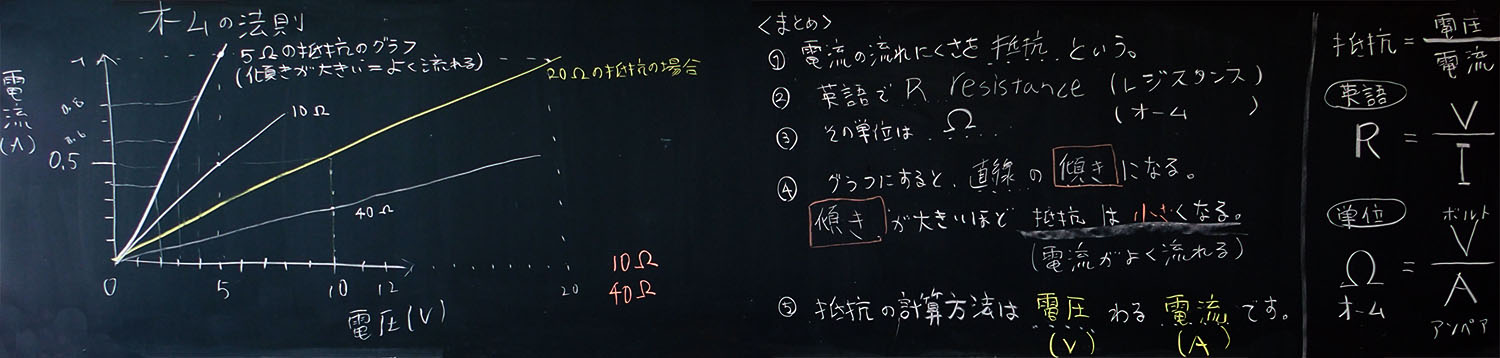 オームの法則
5Ωの抵抗のグラフ
(傾きが大きい=よく流れる)
20Ωの抵抗の場合
電流(A)
1
0.8
0.6
0.5
10Ω
40Ω
0
5
10
12
20
電圧(V)
10Ω
40Ω
<まとめ>
① 電流の流れにくさを抵抗という。
② 英語で R resistance (レジスタンス)
③ その単位は Ω (オーム)
④ グラフにすると、直線の傾きになる。
傾きが大きいほど抵抗は小さくなる。
(電流がよく流れる)
⑤ 抵抗の計算方法は電圧わる電流です。
(V) (A)
抵抗 = 電圧
電流
英語
R = V
I
単位
ボルト
Ω = V
A
オーム
アンペア